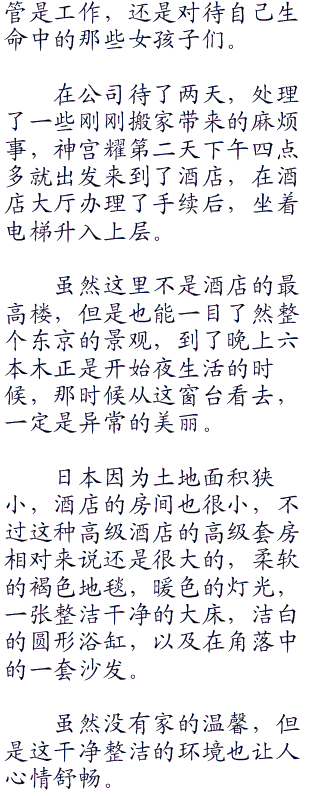 管是工作，还是对待自己生
命中的那些女孩子们。
在公司待了两天，处理
了一些刚刚搬家带来的麻烦
事，神宫耀第二天下午四点
多就出发来到了酒店，在酒
店大厅办理了手续后，坐着
电梯升入上层。
虽然这里不是酒店的最
高楼，但是也能一目了然整
个东京的景观，到了晚上六
本木正是开始夜生活的时
候，那时候从这窗台看去，
一定是异常的美丽。
日本因为土地面积狭
小，酒店的房间也很小，不
过这种高级酒店的高级套房
相对来说还是很大的，柔软
的褐色地毯，暖色的灯光，
一张整洁干净的大床，洁白
的圆形浴缸，以及在角落中
的一套沙发。
虽然没有家的温馨，但
是这干净整洁的环境也让人
心情舒畅。